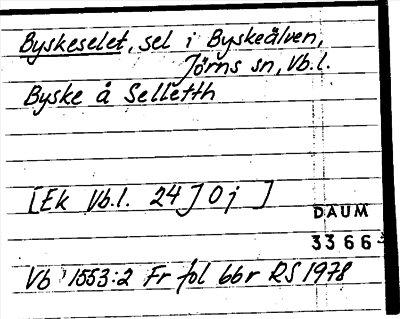 Byskeselet, sel i Byskeälven,
Jörns sn, Vb.l.
Byske å Selletth
[Ek Vb.l. 24 J 0 j ]
DAUM
3366
Vb 1553:2 Fr fol 66r RS 1978